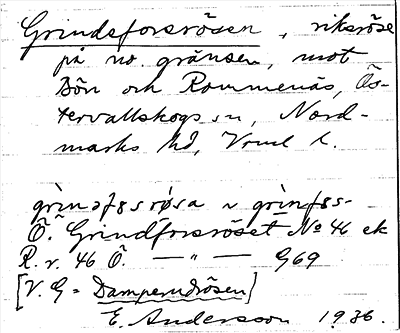 Grindsforsrösen, riksröse
på no. gränsen, mot
Bön och Rommenäs, Ös-
tervallskogs sn, Nord-
marks hd, Vrml l.
Ö. Grindforsröset No 46 ek
R. r. 46 Ö. — " — G69
[V. G = Damperudrösen]
E. Andersson 1936.